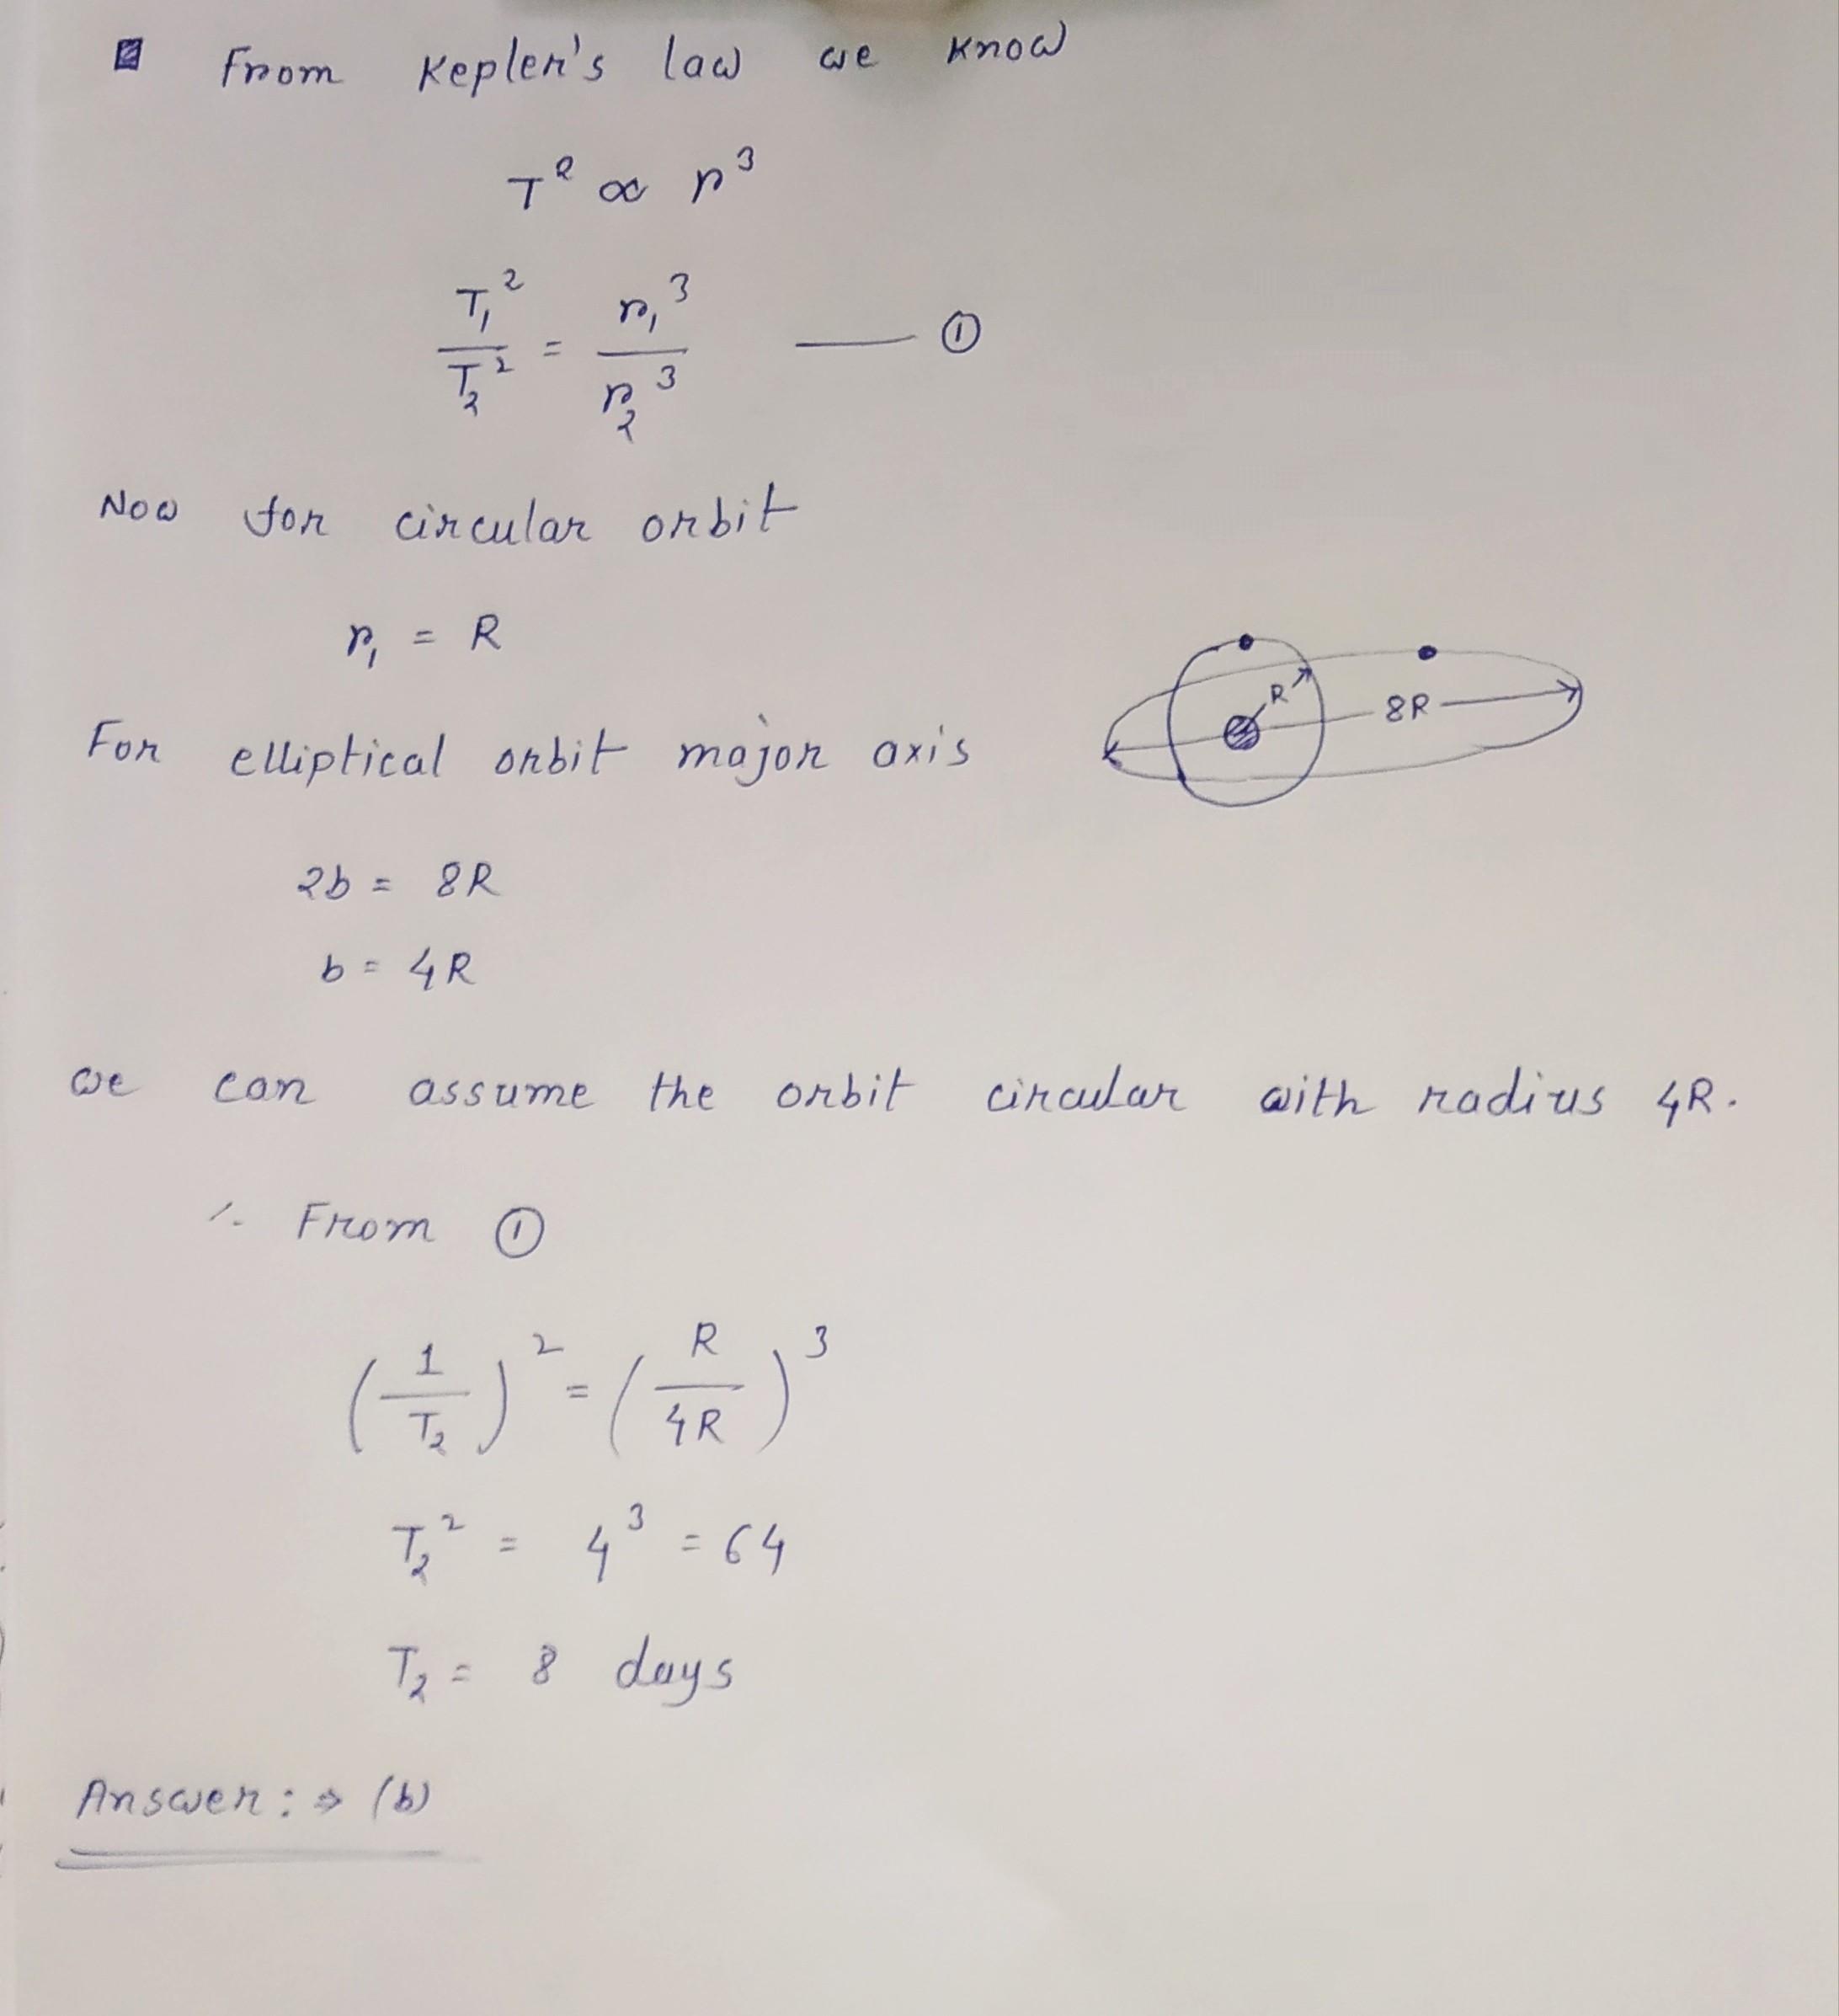 From Kepler's law we know
T² ∝ r³
T₁²/T₂² = r₁³/r₂³ —— ①
Now for circular orbit
r₁ = R
For elliptical orbit major axis
R
8R
2b = 8R
b = 4R
we can assume the orbit circular with radius 4R.
∴ From ①
(1/T₂)² = (R/4R)³
T₂² = 4³ = 64
T₂ = 8 days
Answer : ⇒ (b)